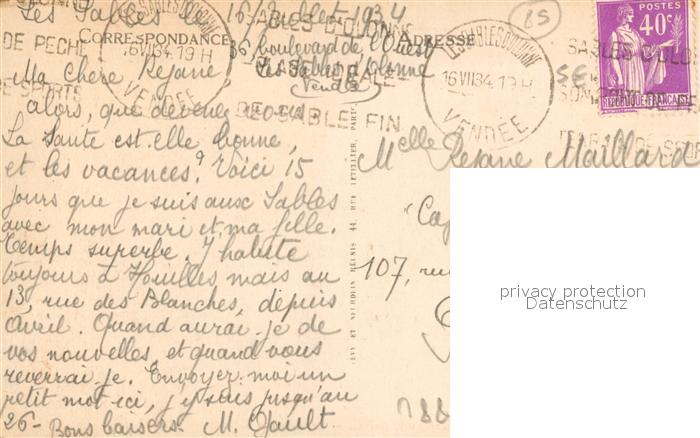 Les Sables le 16 Juillet 1934
CORRESPONDANCE
ADRESSE
36 boulevard de l'Ouest
Les Sables d'Olonne
Vendée
Ma Chère Rejane,
alors, que devenez-vous?
La Santé est-elle bonne,
et les vacances? Voici 15
jours que je suis aux Sables
avec mon mari et ma fille.
Temps superbe. J'habite
toujours à Houilles mais au
13, rue des Blanches, depuis
Avril. Quand aurai-je de
vos nouvelles, et quand vous
reverrai-je. Envoyez moi un
petit mot ici, j'y suis jusqu'au
26 - Bons baisers. M. Gault
LEVY ET NEURDEIN RÉUNIS 44, RUE LETELLIER, PARIS
LES SABLES D'OLONNE
16 VII 34. 19 H
VENDÉE
DE PECHE
DE SPORTS
SABLES D'OLONNE
PLAGE DE
DE SABLE FIN
LES SABLES D'OLONNE
16 VII 34. 19 H
VENDÉE
SABLES D'OLO
SON
85
POSTES
40c
REPUBLIQUE FRANÇAISE
Melle Rejane Maillard
107, ru
privacy protection
Datenschutz